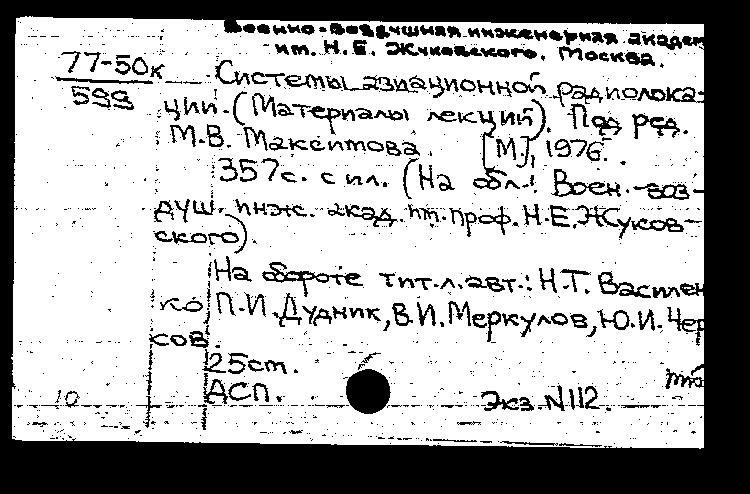 Военно-воздушная инженерная академ
им. Н. Е. Жуковского. Москва.
77-50к
599
Системы авиационной радиолока-
ции. (Материалы лекций). Под ред.
М.В. Максимова. [М], 1976.
357с. с ил. (На обл.: Воен.-воз-
душ. инж. акад. им. проф. Н.Е.Жуков-
ского).
На обороте тит.л. авт.: Н.Т. Василен
ко, П.И. Дудник, В.И. Меркулов, Ю.И. Чер
сов.
25ст.
АСП.
Экз. N112.
10